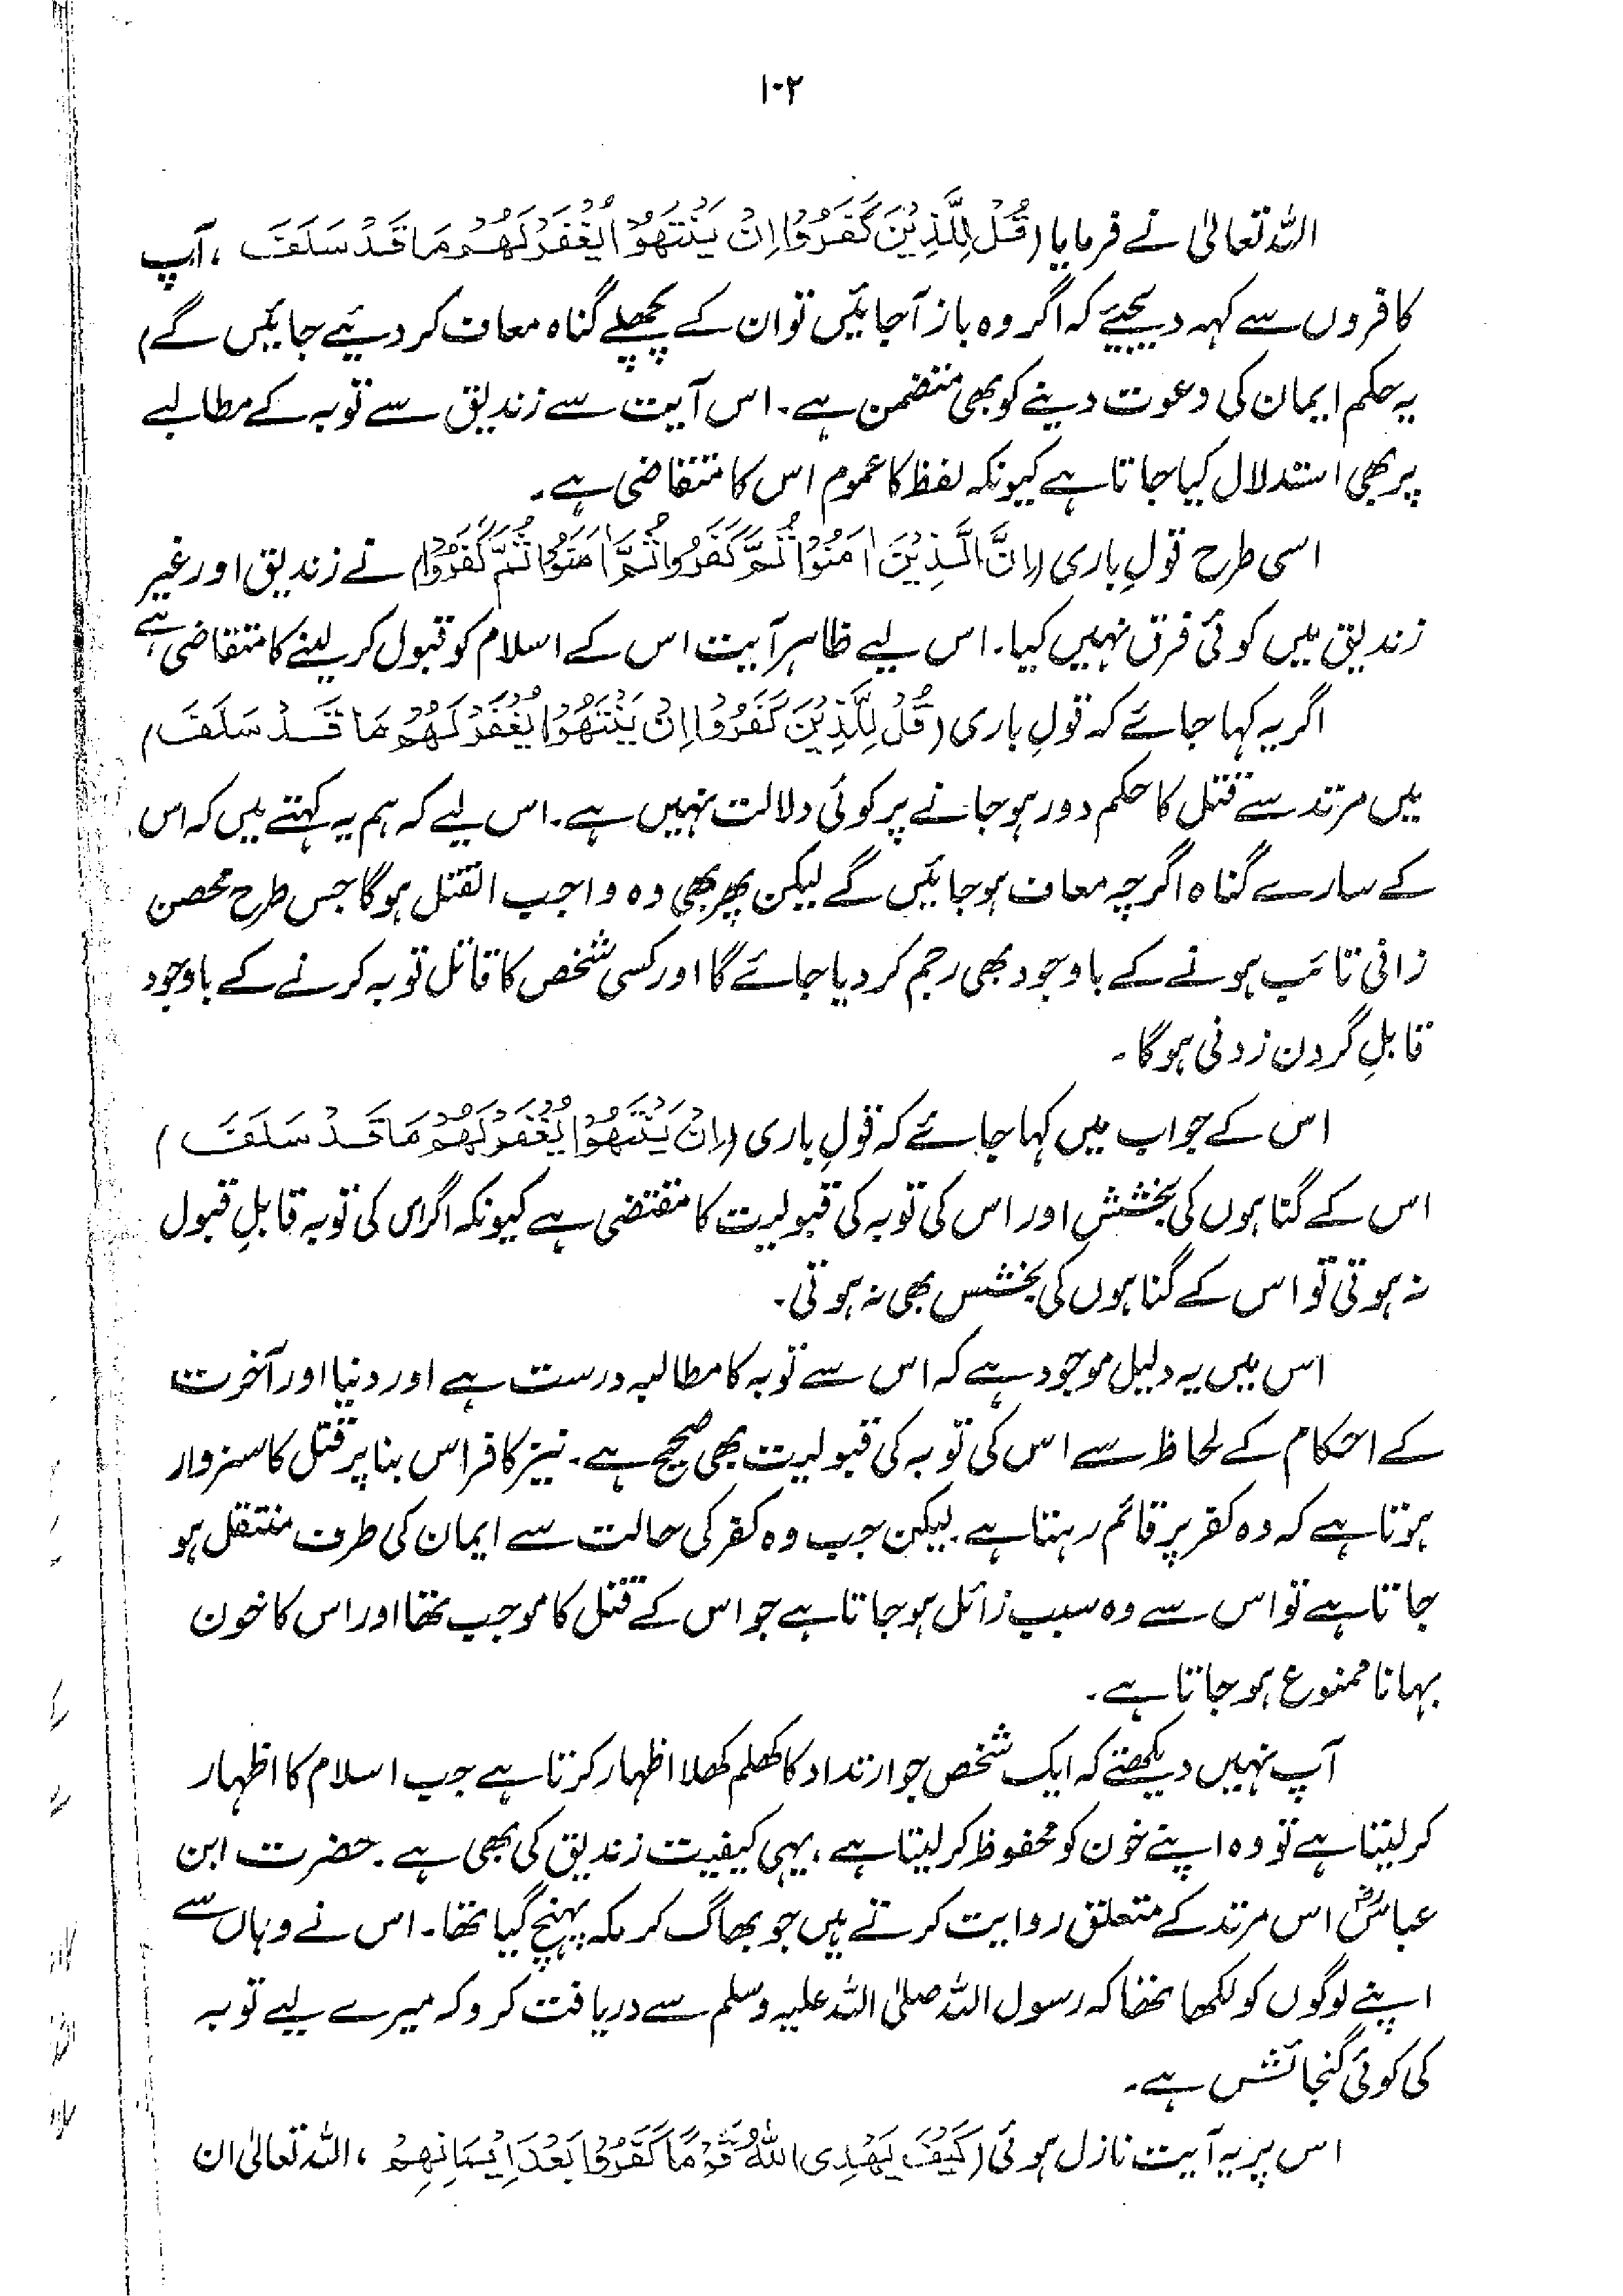 ۱۰۲
اللہ تعالیٰ نے فرمایا (قُلْ لِلَّذِیْنَ کَفَرُوْا اِنْ یَنْتَهُوْا یُغْفَرْ لَهُمْ مَا قَدْ سَلَفَ ، آپ
کافروں سے کہہ دیجیئے کہ اگر وہ باز آجائیں تو ان کے پچھلے گناہ معاف کر دیئیے جائیں گے)
یہ حکم ایمان کی دعوت دینے کو بھی متضمن ہے۔ اس آیت سے زندیق سے توبہ کے مطالبے
پر بھی استدلال کیا جاتا ہے کیونکہ لفظ کا عموم اس کا متقاضی ہے۔
اسی طرح قولِ باری (اِنَّ الَّذِیْنَ اٰمَنُوْا ثُمَّ کَفَرُوا ثُمَّ اٰمَنُوْا ثُمَّ کَفَرُوْا) نے زندیق اور غیر
زندیق میں کوئی فرق نہیں کیا۔ اس لیے ظاہر آیت اس کے اسلام کو قبول کر لینے کا متقاضی ہے
اگر یہ کہا جائے کہ قولِ باری (قُلْ لِلَّذِیْنَ کَفَرُوْا اِنْ یَنْتَهُوْا یُغْفَرْ لَهُمْ مَا قَدْ سَلَفَ)
میں مرتد سے قتل کا حکم دور ہو جانے پر کوئی دلالت نہیں ہے۔ اس لیے کہ ہم یہ کہتے ہیں کہ اس
کے سارے گناہ اگرچہ معاف ہو جائیں گے لیکن پھر بھی وہ واجب القتل ہوگا جس طرح محصن
زانی تائب ہونے کے باوجود بھی رجم کر دیا جائے گا اور کسی شخص کا قاتل توبہ کرنے کے باوجود
قابلِ گردن زدنی ہوگا۔
اس کے جواب میں کہا جائے کہ قولِ باری (اِنْ یَنْتَهُوْا یُغْفَرْ لَهُمْ مَا قَدْ سَلَفَ)
اس کے گناہوں کی بخشش اور اس کی توبہ کی قبولیت کا مقتضی ہے کیونکہ اگر اس کی توبہ قابلِ قبول
نہ ہوتی تو اس کے گناہوں کی بخشش بھی نہ ہوتی۔
اس میں یہ دلیل موجود ہے کہ اس سے توبہ کا مطالبہ درست ہے اور دنیا اور آخرت
کے احکام کے لحاظ سے اس کی توبہ کی قبولیت بھی صحیح ہے۔ نیز کافر اس بنا پر قتل کا سزوار
ہوتا ہے کہ وہ کفر پر قائم رہتا ہے۔ لیکن جب وہ کفر کی حالت سے ایمان کی طرف منتقل ہو
جاتا ہے تو اس سے وہ سبب زائل ہو جاتا ہے جو اس کے قتل کا موجب تھا اور اس کا خون
بہانا ممنوع ہو جاتا ہے۔
آپ نہیں دیکھتے کہ ایک شخص جو ارتداد کا کھلم کھلا اظہار کرتا ہے جب اسلام کا اظہار
کر لیتا ہے تو وہ اپنے خون کو محفوظ کر لیتا ہے، یہی کیفیت زندیق کی بھی ہے۔ حضرت ابن
عباسؓ اس مرتد کے متعلق روایت کرتے ہیں جو بھاگ کر مکہ پہنچ گیا تھا۔ اس نے وہاں سے
اپنے لوگوں کو لکھا تھا کہ رسول اللہ صلی اللہ علیہ وسلم سے دریافت کرو کہ میرے لیے توبہ
کی کوئی گنجائش ہے۔
اس پر یہ آیت نازل ہوئی (کَیْفَ یَهْدِی اللّٰهُ قَوْمًا کَفَرُوْا بَعْدَ اِیْمَانِهِمْ ، اللہ تعالیٰ ان